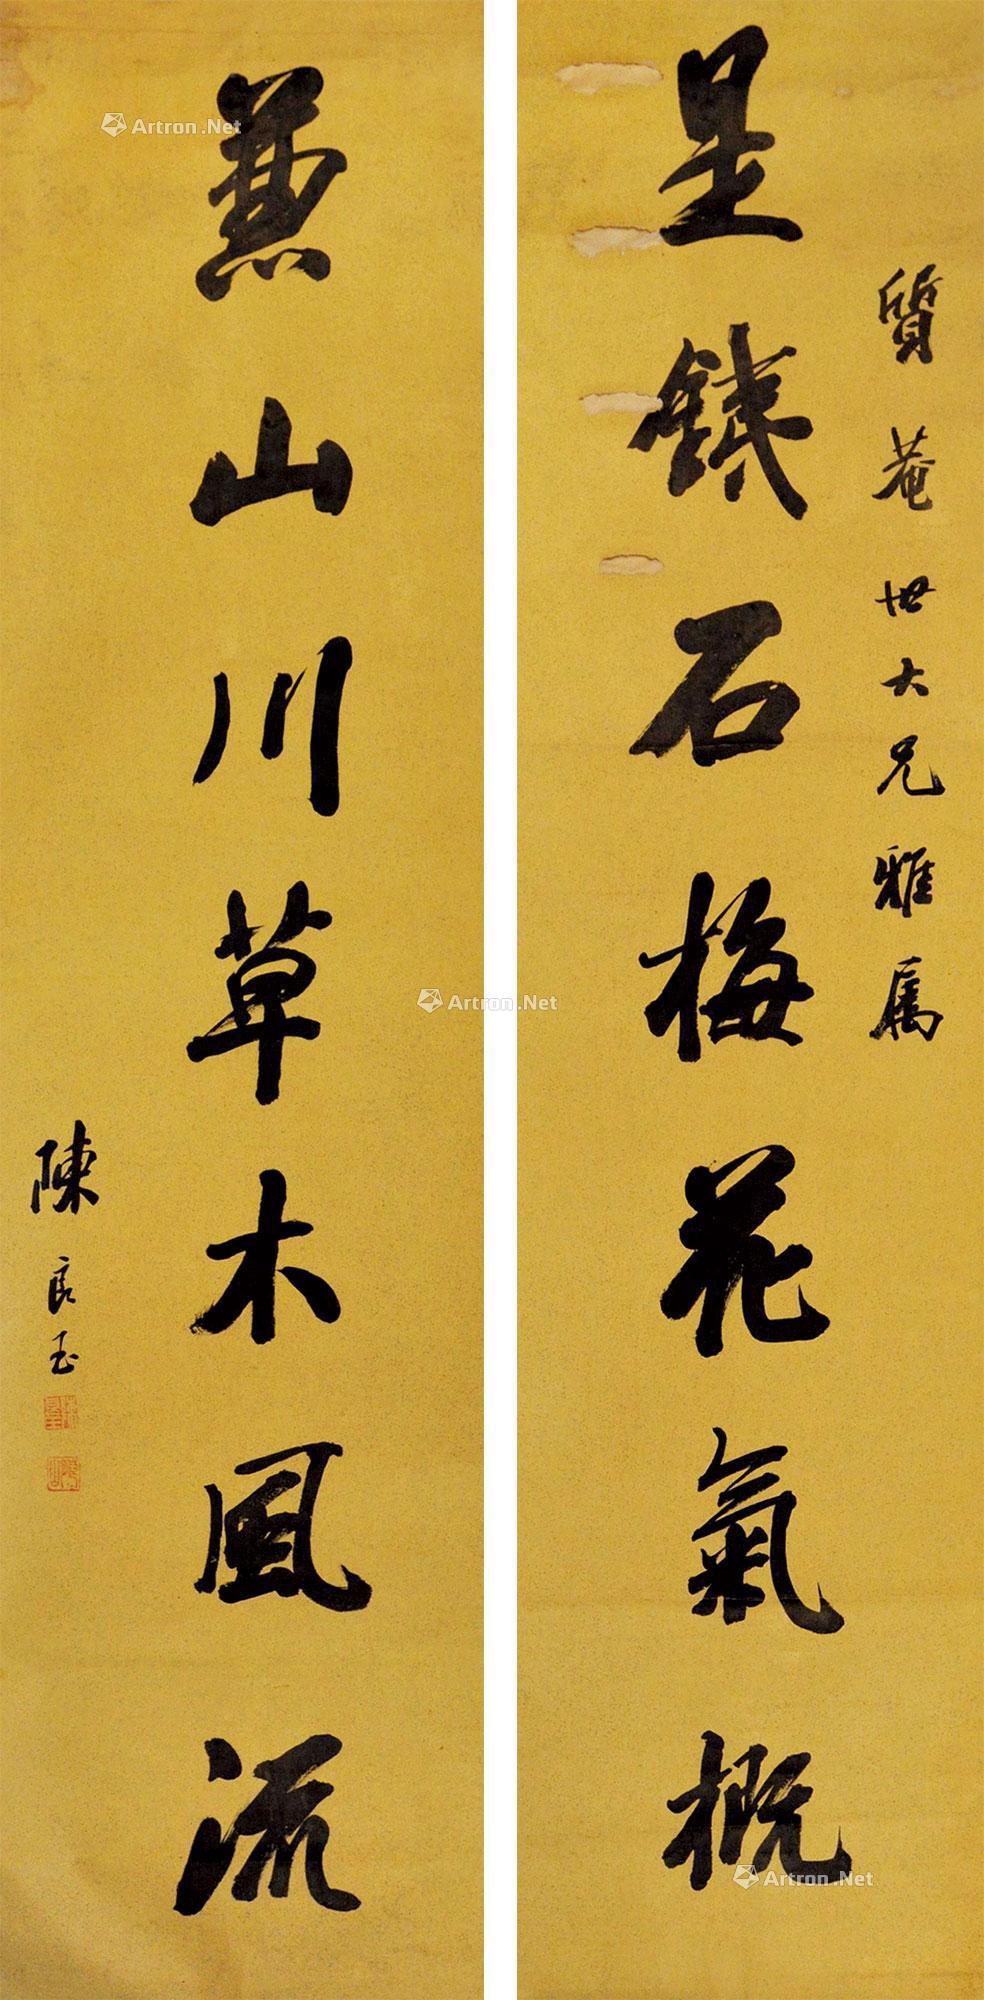 質菴世大兄雅属
是鐵石梅花氣概
兼山川草木風流
陳良玉
Artron.Net
Artron.Net
Artron.Net